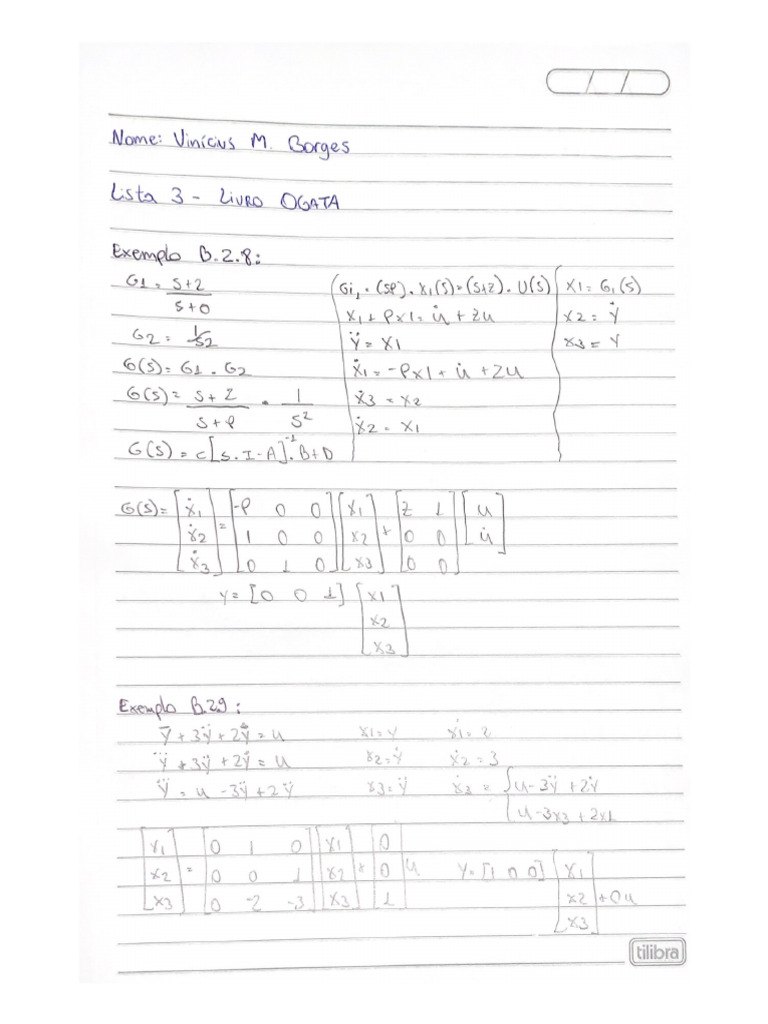 Nome: Vinícius M. Borges
Lista 3 - LIVRO OGATA
Exemplo B.2.8:
G1 = s+2 / s+0
G2 = 1/s2
G(s) = G1 . G2
G(s) = s+2 / s+p . 1 / s²
G(s) = c[s.I-A]⁻¹.B+D
Gi₁ = (sp) . x₁(s) = (s+z) . U(s)
x₁ + px1 = u̇ + zu
ÿ = x1
ẋ₁ = -px1 + u̇ + zu
ẋ3 = x2
ẋ2 = x₁
x1 = G₁(s)
x2 = ẏ
x3 = y
G(s) = [ẋ₁ ẋ2 ẋ3] = [-p 0 0; 1 0 0; 0 1 0] [x1 x2 x3] + [z 1; 0 0; 0 0] [u u̇]
y = [0 0 1] [x1 x2 x3]
Exemplo B.2.9:
y + 3ÿ + 2ẏ = u
x1 = y
ẋ1 = 2
y + 3ÿ + 2ẏ = u
x2 = ẏ
ẋ2 = 3
y = u - 3ÿ + 2ẏ
x3 = ÿ
ẋ3 = { u - 3ÿ + 2ẏ
u - 3x3 + 2x1
[x1 x2 x3] = [0 1 0; 0 0 1; 0 -2 -3] [x1 x2 x3] + [0 0 1] u
y = [1 0 0] [x1 x2 x3] + 0u
tilibra